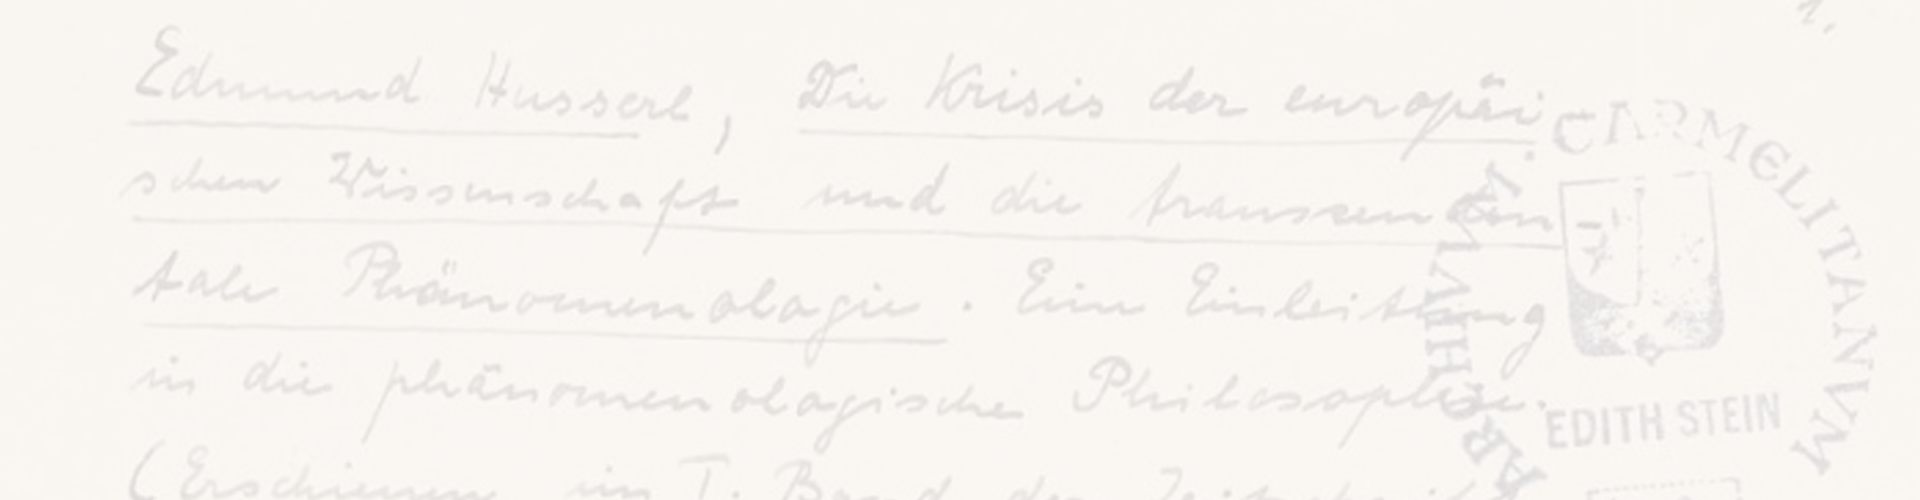 1.
Edmund Husserl, Die Krisis der europäi
schen Wissenschaft und die transzenden
tale Phänomenologie. Eine Einleitung
in die phänomenologische Philosophie.
(Erschienen im I. Band der Zeitschrift
ARCHIVVM CARMELITANVM
EDITH STEIN